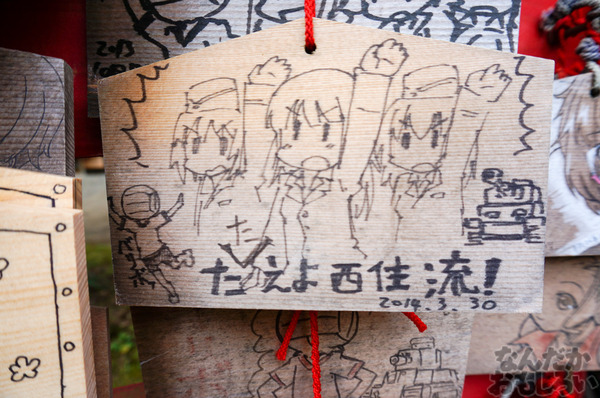 2013
たたえよ西住流!
2014.3.30
なんだか
おもしろい